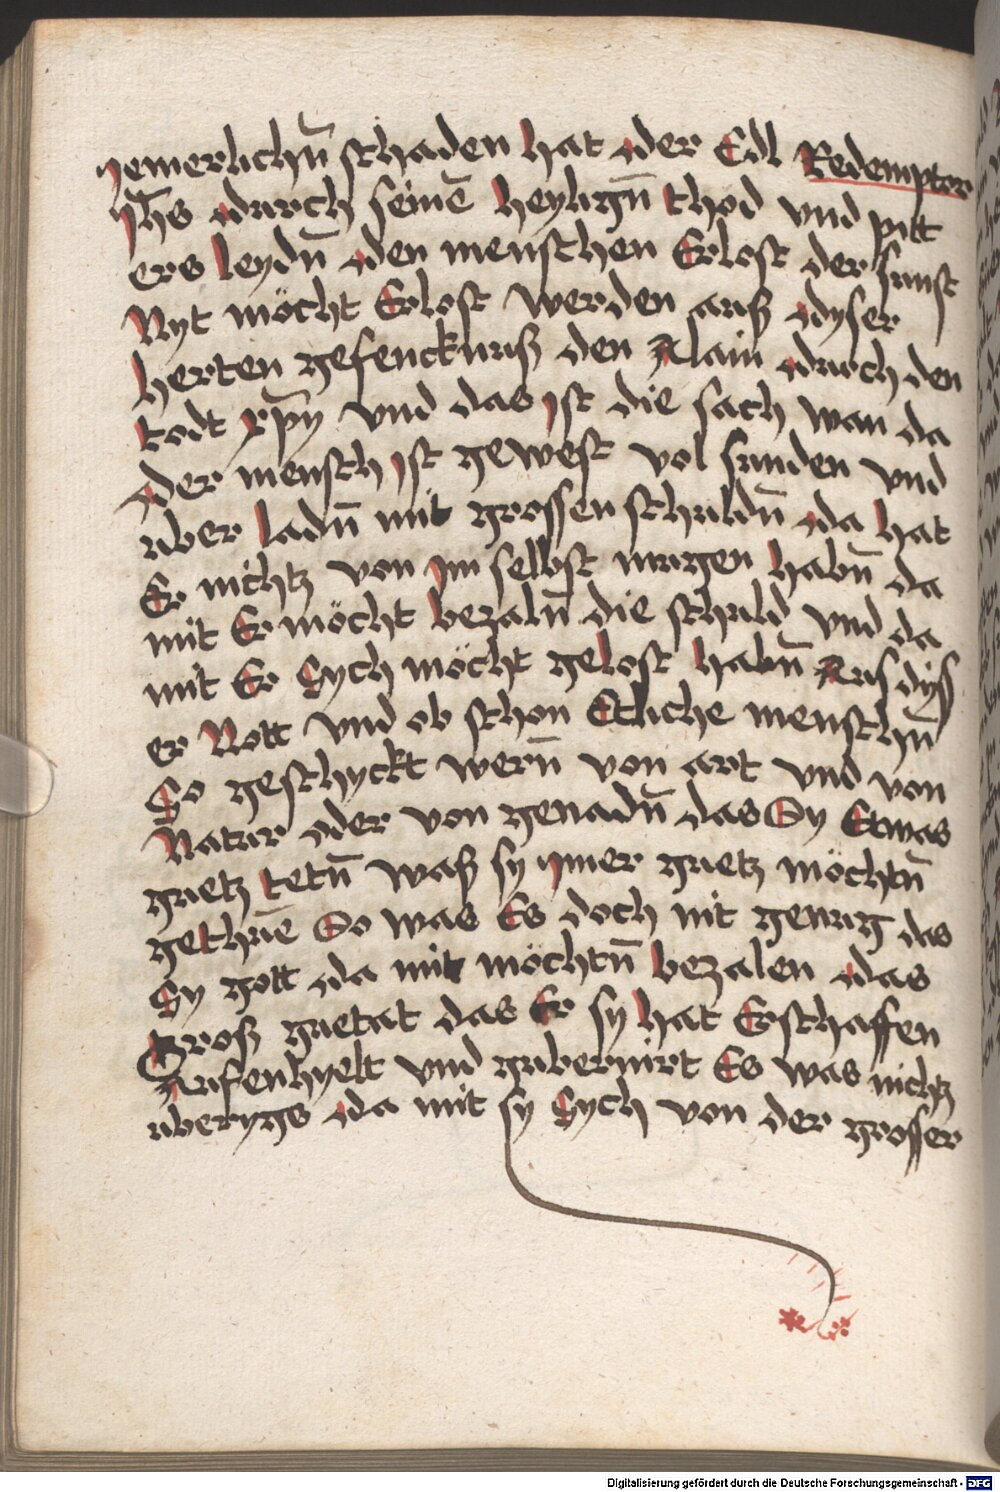 yemerlichn̄ schaden hat der Edl Redemptor
Jh̄s durch seinē heylign̄ thod vnd pitt
ers leydn̄ den menschen Erlost der sunst
Nyt möcht Erlost werden auß dyser
herten gefencknuß den Alain durch den
todt xp̄y vnd das ist die sach wan da
der mensch ist gewest vol sunden vnd
uber ladn̄ mit grossen schuldn̄ da hat
Er nichtz von im selbst mugen habn̄ da
mit Er möcht bezaln̄ die schuld vnd da
mit Er Sych möcht gelost habn̄ Aus dyss
er Nott vnd ob schon Etliche menschn̄
So geschyckt wern̄ von art vnd von
Natur oder von genadn̄ das Sy Etwas
guetz tetn̄ waß sy ymer guetz möchtn̄
gethuē So was Es doch nit genug das
Sy gott da mit möchtn̄ bezalen das
Groß guetat das Er sy hat Erschaffen
Aufenhyelt vnd gubernirt Es was nichtz
uberygs da mit sy Sych von der grosser
Digitalisierung gefördert durch die Deutsche Forschungsgemeinschaft - DFG